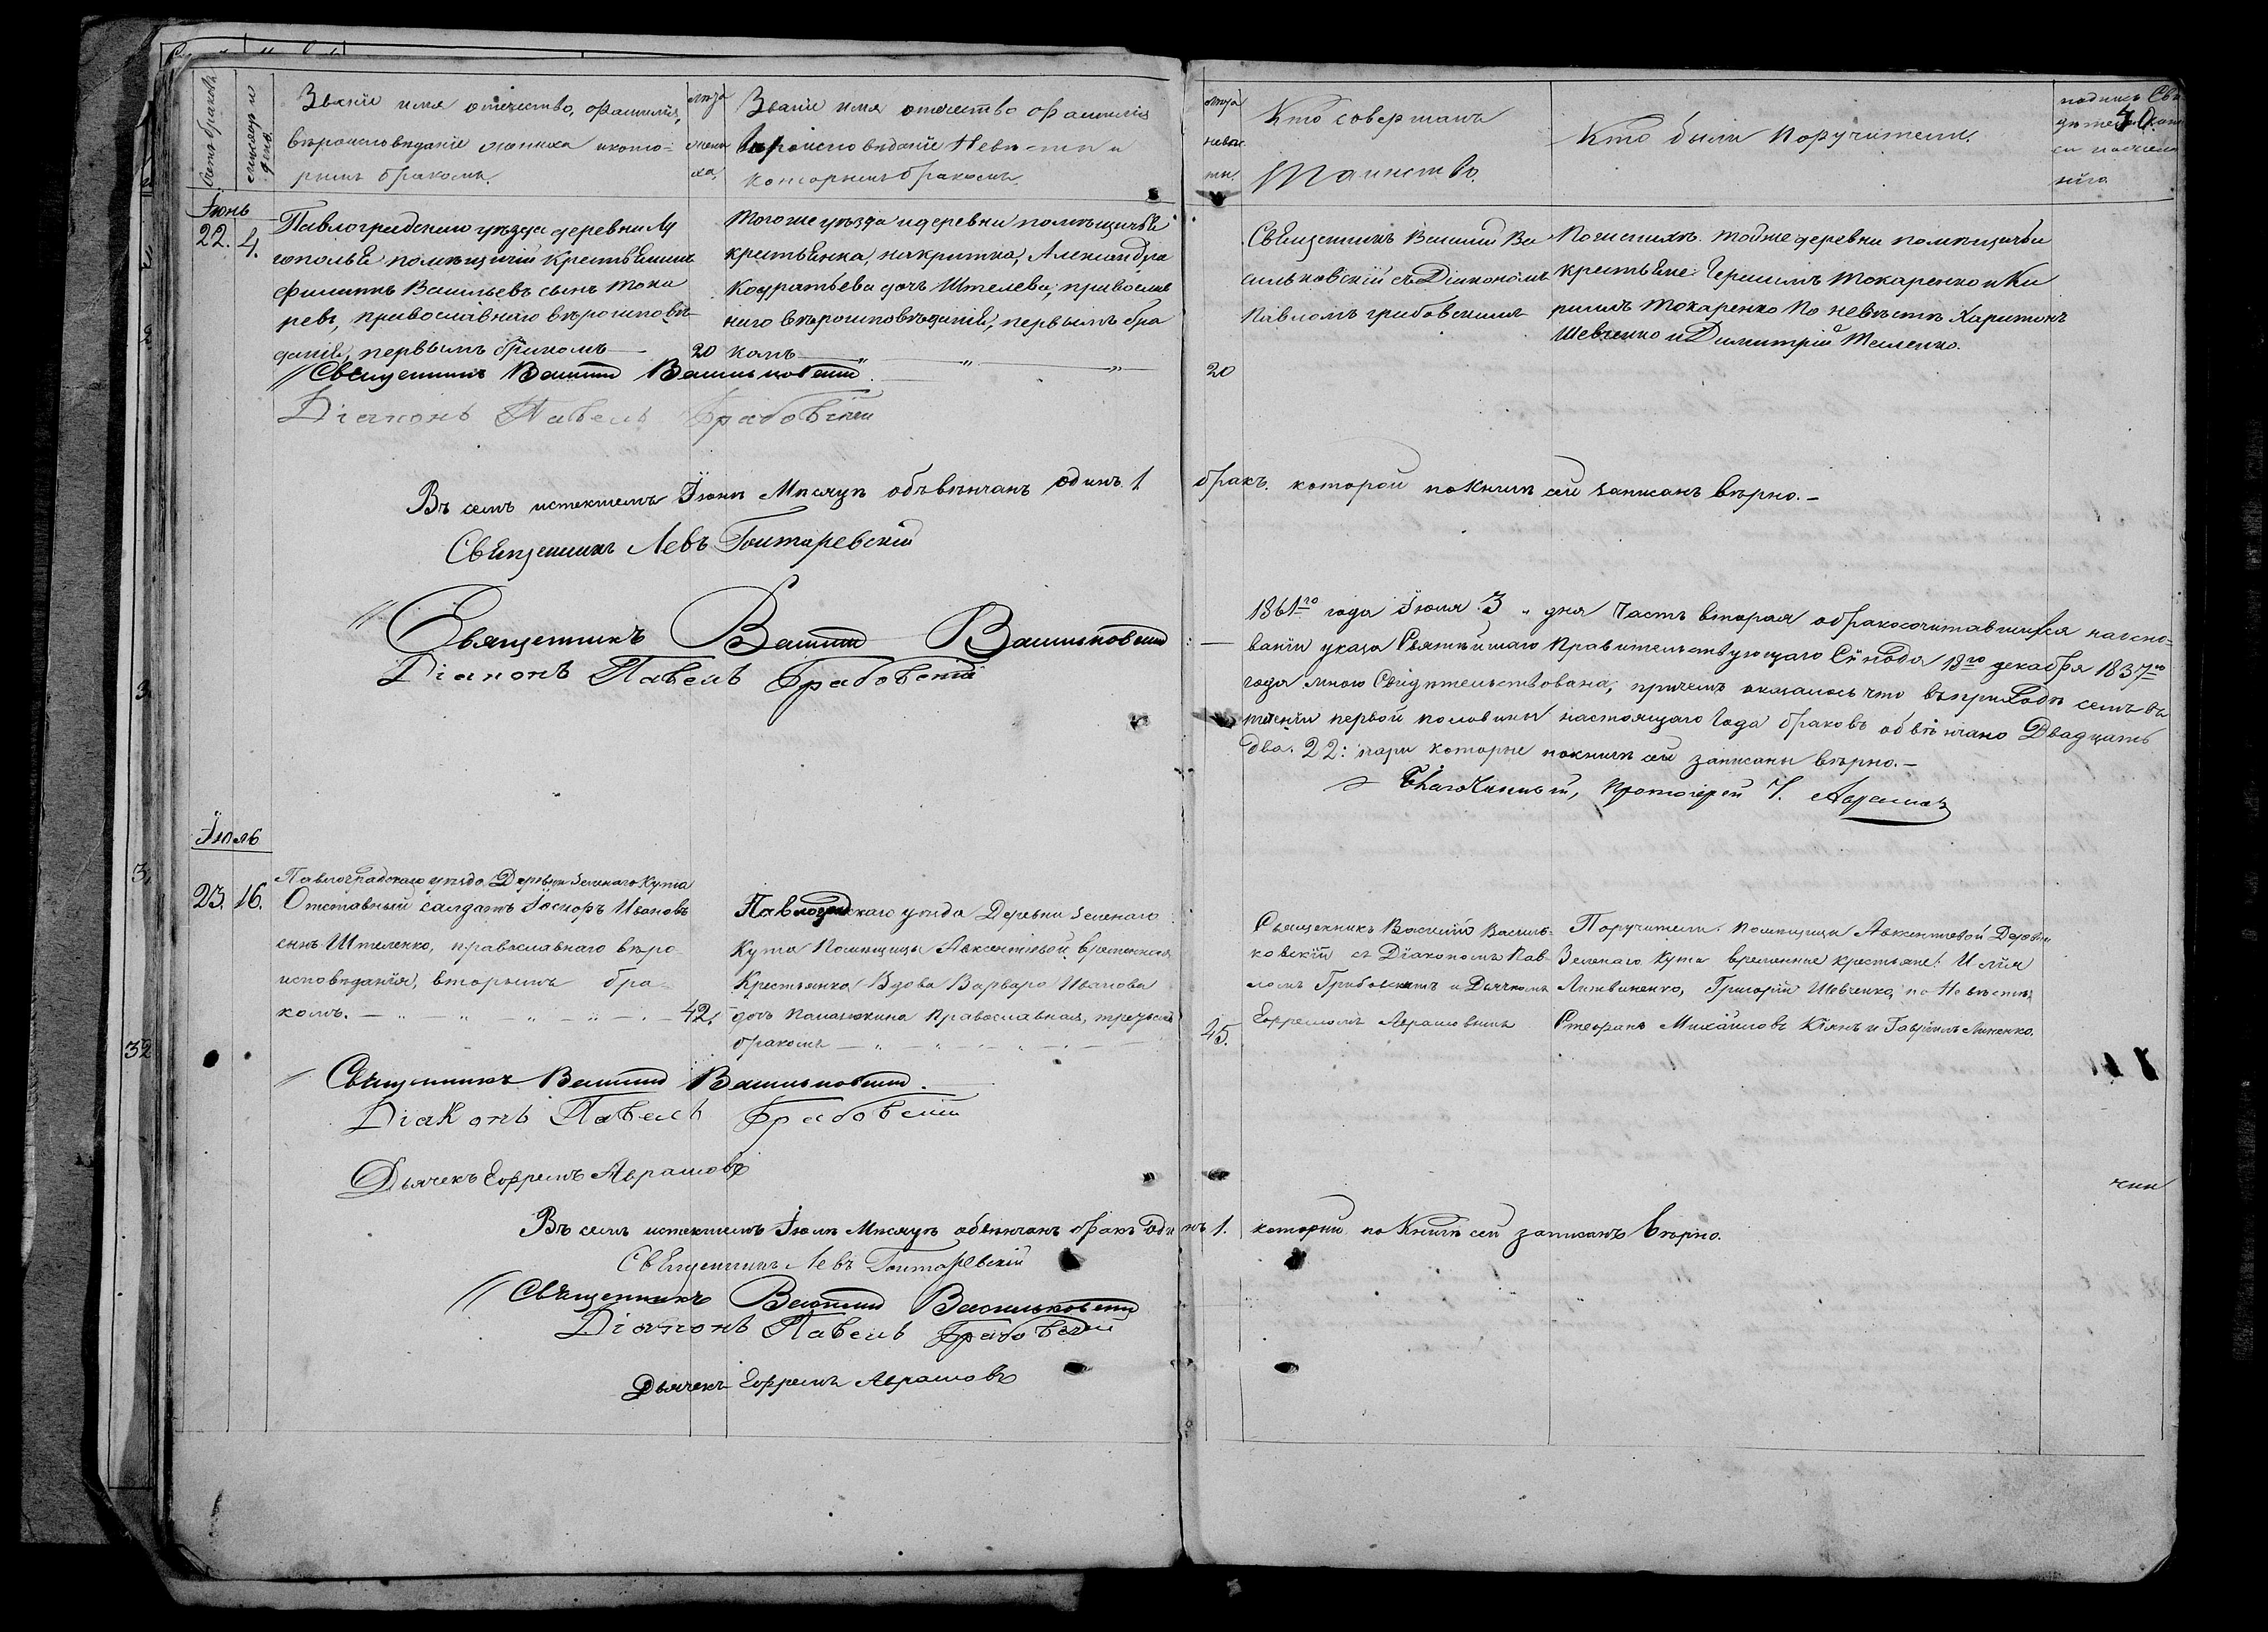 Счетъ браковъ
Мѣсяцъ и день.
Званіе имя отчество, фамилія,
вѣроисповѣданіе жениха и кото-
рымъ бракомъ.
лѣта
жени
ха,
Званіе имя отчество фамилія
вѣроисповѣданіе Невѣсты и
которымъ бракомъ.
лѣта
невѣс
ты.
Кто совершалъ
Таинство.
Кто были Поручители.
подпись Сви
дѣтелей
40.
Іюнь
22. 4.
Павлоградскаго уѣзда деревни Лу
гополья помѣщичій крестьянинъ
Филиппъ Васильевъ сынъ Тока
ревъ, православнаго вѣроисповѣ
данія, первымъ бракомъ
20
Тогоже уѣзда и деревни помѣщичья
крестьянка, Александра
Кодратьева дочь Штелева, православ
наго вѣроисповѣданія, первымъ бра
комъ
20
Священникъ Василій Ва
сильковскій съ Діакономъ
Павломъ Грабовскимъ
По женихѣ. тойже деревни помѣщичьи
крестьяне Герасимъ Токаренко и Ки
рилъ Токаренко По невѣстѣ Харитонъ
Шевченко и Димитрій Теленко.
Священникъ Василій Васильковскій.
Діаконъ Павелъ Грабовскій
Въ семъ истекшемъ Іюнѣ Мѣсяцѣ обвѣнчанъ одинъ 1 бракъ. которой по Книгѣ сей записанъ вѣрно.–
Священникъ Левъ Гонтаревскій
Священникъ Василій Васильковскій
Діаконъ Павелъ Грабовскій
1861го года Іюля 3 дня Часть вторая о бракосочитавшихся на осно-
ваніи указа Святѣйшаго Правительствующаго Сѵнода 18го декабря 1837го
года мною Свидѣтельствована, причемъ оказалось что въ приходѣ семъ въ
теченіи первой половины настоящаго Года браковъ обвѣнчано Двадцать
два. 22: пары которые по книгѣ сей записаны вѣрно.–
Благочинный, Протоіерей І. Аврамовъ
Іюль
23. 16.
Павлоградскаго уѣзда Деревни Зеленаго Кута
Отставный салдатъ Ивановъ
сынъ Штеленко, православнаго вѣро-
исповѣданія, вторымъ бра-
комъ.
42.
Павлоградскаго уѣзда Деревни Зеленаго
Кута Помѣщицы Авксентіевой, временная
Крестьянка Вдова Варвара Иванова
дочь православная, третьимъ
бракомъ
45.
Священникъ Василій Василь-
ковскій съ Діакономъ Пав-
ломъ Грабовскимъ и Дьячкомъ
Ефремомъ Аврамовымъ
Поручители. помѣщицы Авксентіевой Деревни
Зеленаго Кута временные крестьяне: Илія
Литвиненко, Григорій Шевченко, по Невѣстѣ
Стефанъ Михайловъ Кіянъ и Гавріилъ Линенко.
Священникъ Василій Васильковскій.
Діаконъ Павелъ Грабовскій
Дьячекъ Ефремъ Аврамовъ
Въ семъ истекшемъ Іюлѣ Мѣсяцѣ обвѣнчанъ бракъ одинъ 1. который по Книгѣ сей записанъ вѣрно.
Священникъ Левъ Гонтаревскій
Священникъ Василій Васильковскій
Діаконъ Павелъ Грабовскій
Дьячекъ Ефремъ Аврамовъ